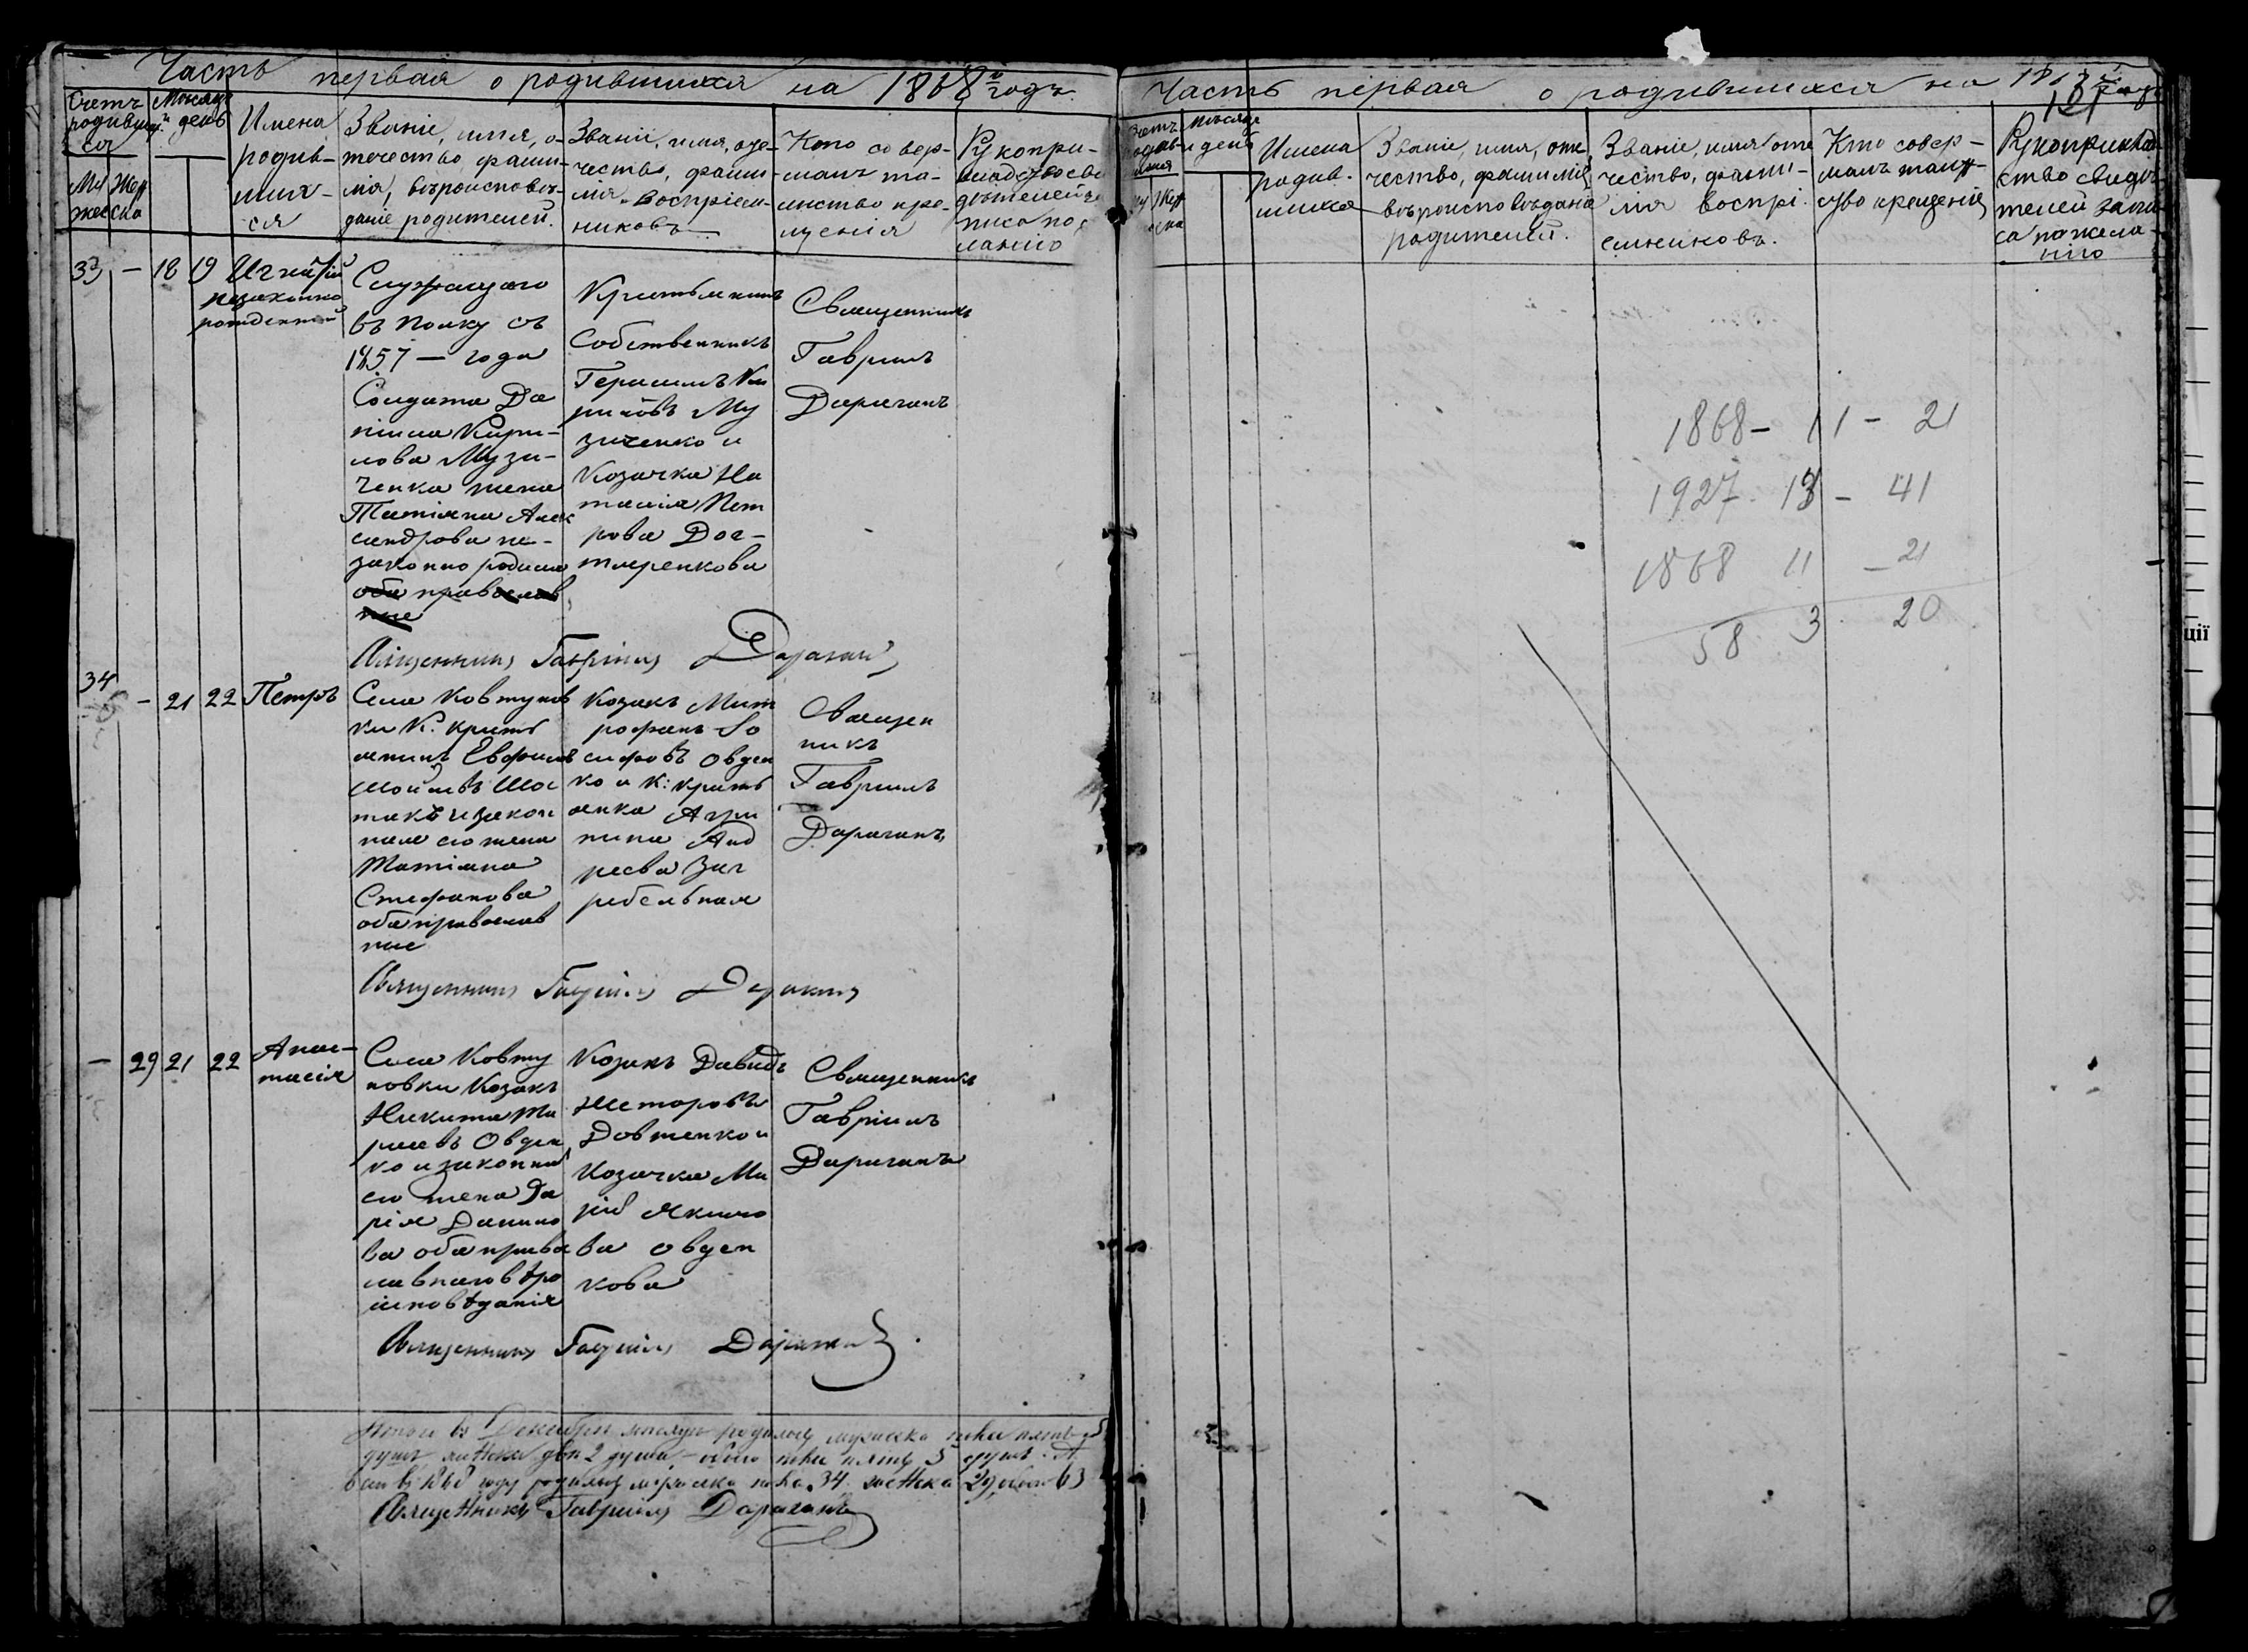 Часть первая о родившихся на 1868й годъ.
Счетъ родившихся
Муж. Жен
Месяцъ и день
Имена
родив-
ших-
ся
Званіе, имя, о-
течество, фами-
лія, въроисповъ-
даніе родителей.
Званіе, имя, оте-
чество, фами-
лія воспріем-
никовъ
Кто совер-
шалъ та-
инство кре-
щенія
Рукопри-
33 — 18 19
Игнатій
незаконно
рожденный
Служащаго
въ полку съ
1857 — года
Солдата Да
ніила Кири-
лова Музи-
ченка жена
Татіяна Алек
сандрова не-
законно родила
оба православ
ные
Собственникъ
Герасимъ Ки
риловъ Му
зиченко и
Козачка На
талія Пет
рова Дог-
тяренкова
Священникъ
Гавріилъ
Дараганъ
Священникъ Гавріилъ Дараганъ
34 — 21 22 Петръ
Села Ковтунов
ки К. кресть
янинъ Ефимъ
и законная
его жена
Татіяна
Стефанова
оба православ
ные
Козакъ Мит
рофанъ Іо
сифовъ Овдеен
ко и К: кресть
янка Агри
пина Анд
реева Заг
ребельная
Священ
никъ
Гавріилъ
Дараганъ
Священникъ Гавріилъ Дараганъ
— 29 21 22
Анас-
тасія
Села Ковту
новки Козакъ
Никита
Овдеен
ко и законная
его жена Да
рія Данило
ва оба правос
лавнаго въро
исповъданія
Козакъ Давидъ
Несторовъ
Довженко и
Козачка Ма
рія Якимо
ва Овдеен
кова
Священникъ
Гавріилъ
Дараганъ
Священникъ Гавріилъ Дараганъ
Итого въ Декабрь месяцъ родилось мужеска пола
душъ женска двъ 2 души, обоего пола пять 5 душъ. А
въ 1868 году родилось мужеска пола 34. женска 29, обоего 63
Священникъ Гавріилъ Дараганъ
Часть первая о родившихся на
121
Имена
родив-
шихся
Званіе, имя, оте
чество, фамилія,
въроисповъданіе
родителей.
Званіе, имя оте
чество, фами-
лія воспрі-
емниковъ.
Кто совер-
шалъ таин-
ство крещенія
Рукоприклад-
ство свидъ-
телей запи-
си по жела-
нію
1868 - 11 - 21
1927 13 - 41
1868 11 - 21
58 3 20
ції